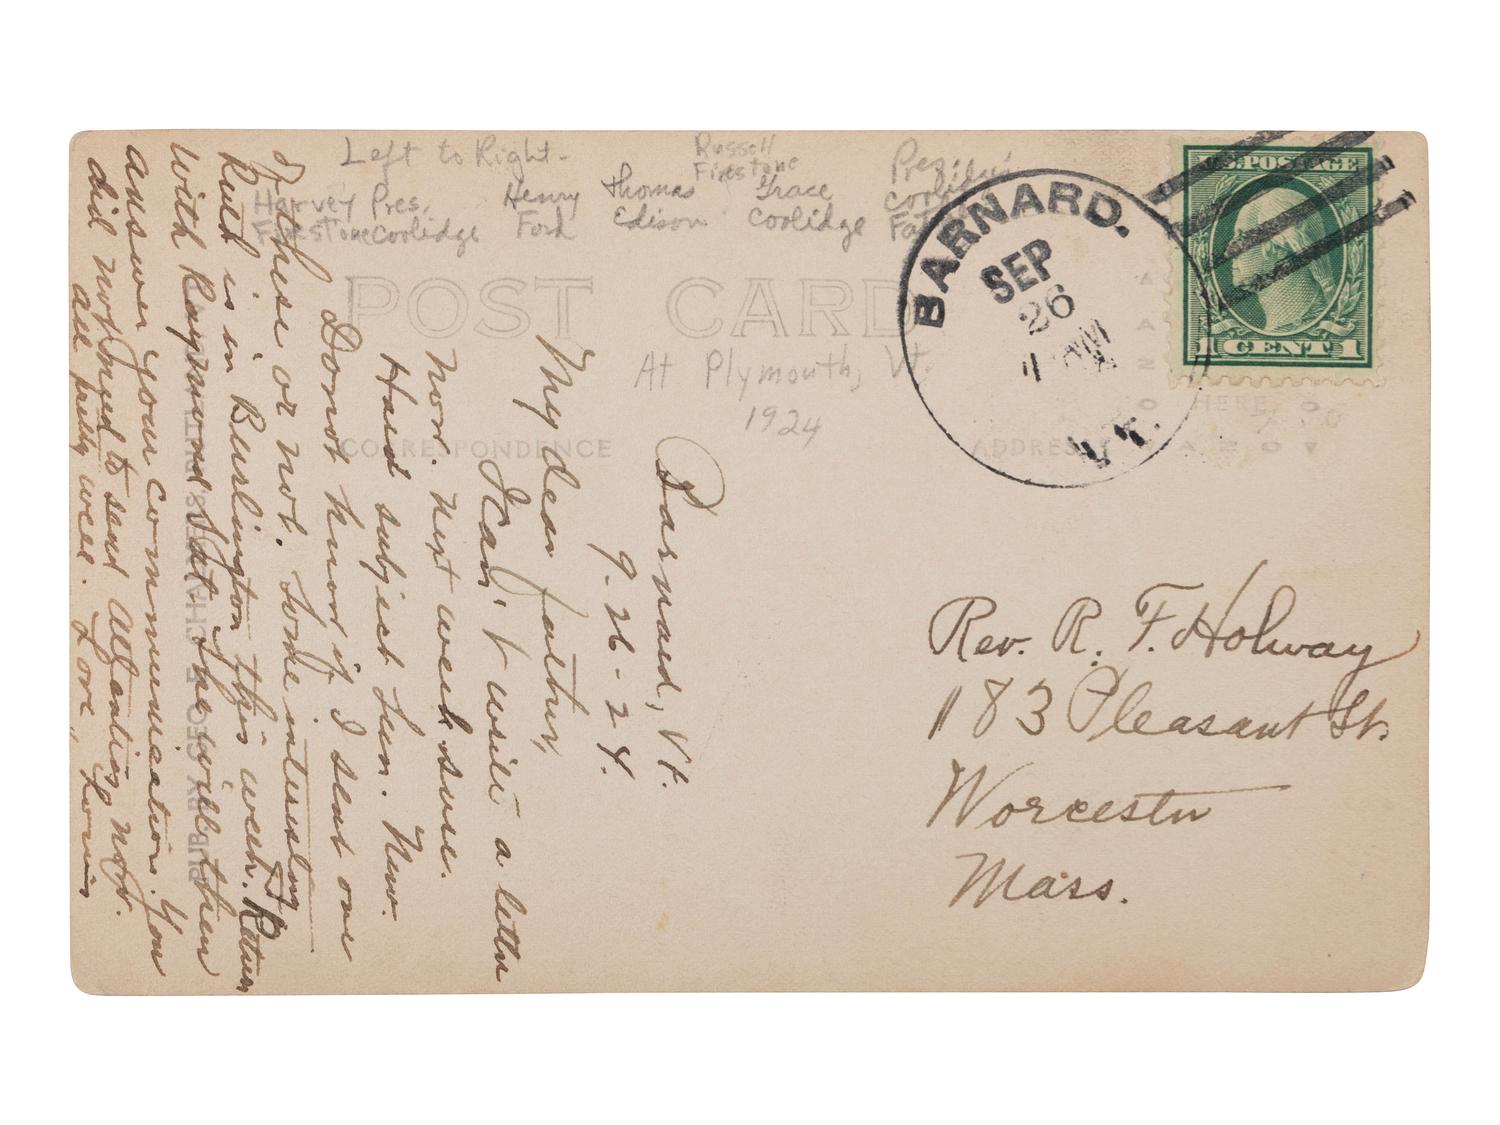 Left to Right-
Harvey Firestone
Pres. Coolidge
Henry Ford
Thomas Edison
Russell Firestone
Grace Coolidge
POST CARD
At Plymouth, Vt.
1924
CORRESPONDENCE
ADDRESS
HERE
BARNARD.
SEP
26
VT.
U.S. POSTAGE
1 CENT 1
Barnard, Vt.
9-26-24.
My dear father,
I can't write a letter
now. next week sure.
Hard subject Sun. New.
Do not know if I sent one
of these or not. Some interesting
Ruth is in Burlington this week. Return
with Raymond Sat. She will then
answer your communication. You
did not need to send
all pretty well. Love,
Rev. R. F. Holway
183 Pleasant St.
Worcester
Mass.
PUB. BY GEO. E. CHALMERS, RUTLAND, VT.